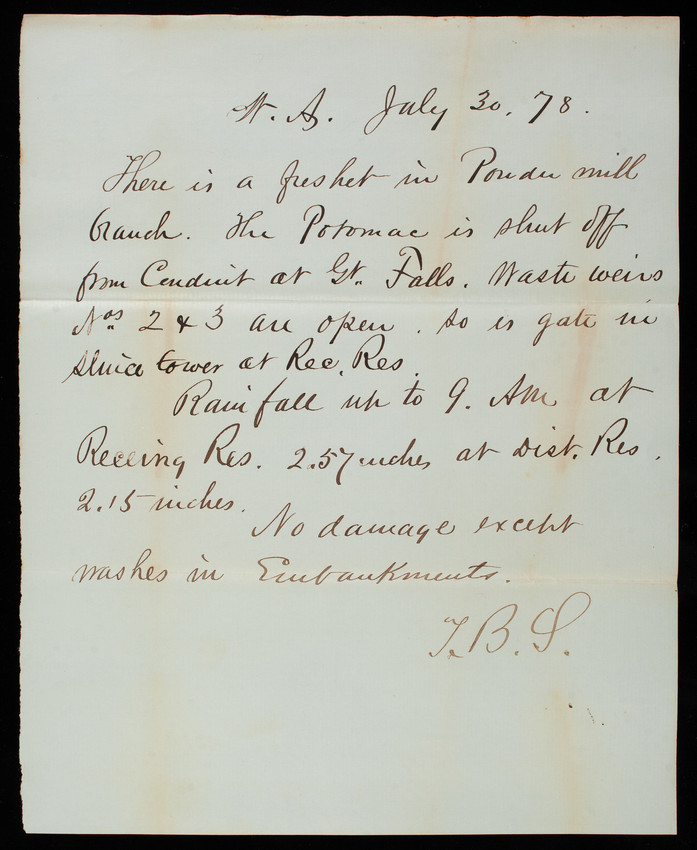 W. A. July 30. 78.
There is a freshet in Powder mill
branch. The Potomac is shut off
from Conduit at Gt. Falls. Waste weirs
Nos. 2 & 3 are open. so is gate in
Sluice tower at Rec. Res.
Rainfall up to 9. AM at
Receing Res. 2.57 inches at Dist. Res.
2.15 inches.
No damage except
washes in Embankments.
T. B. S.